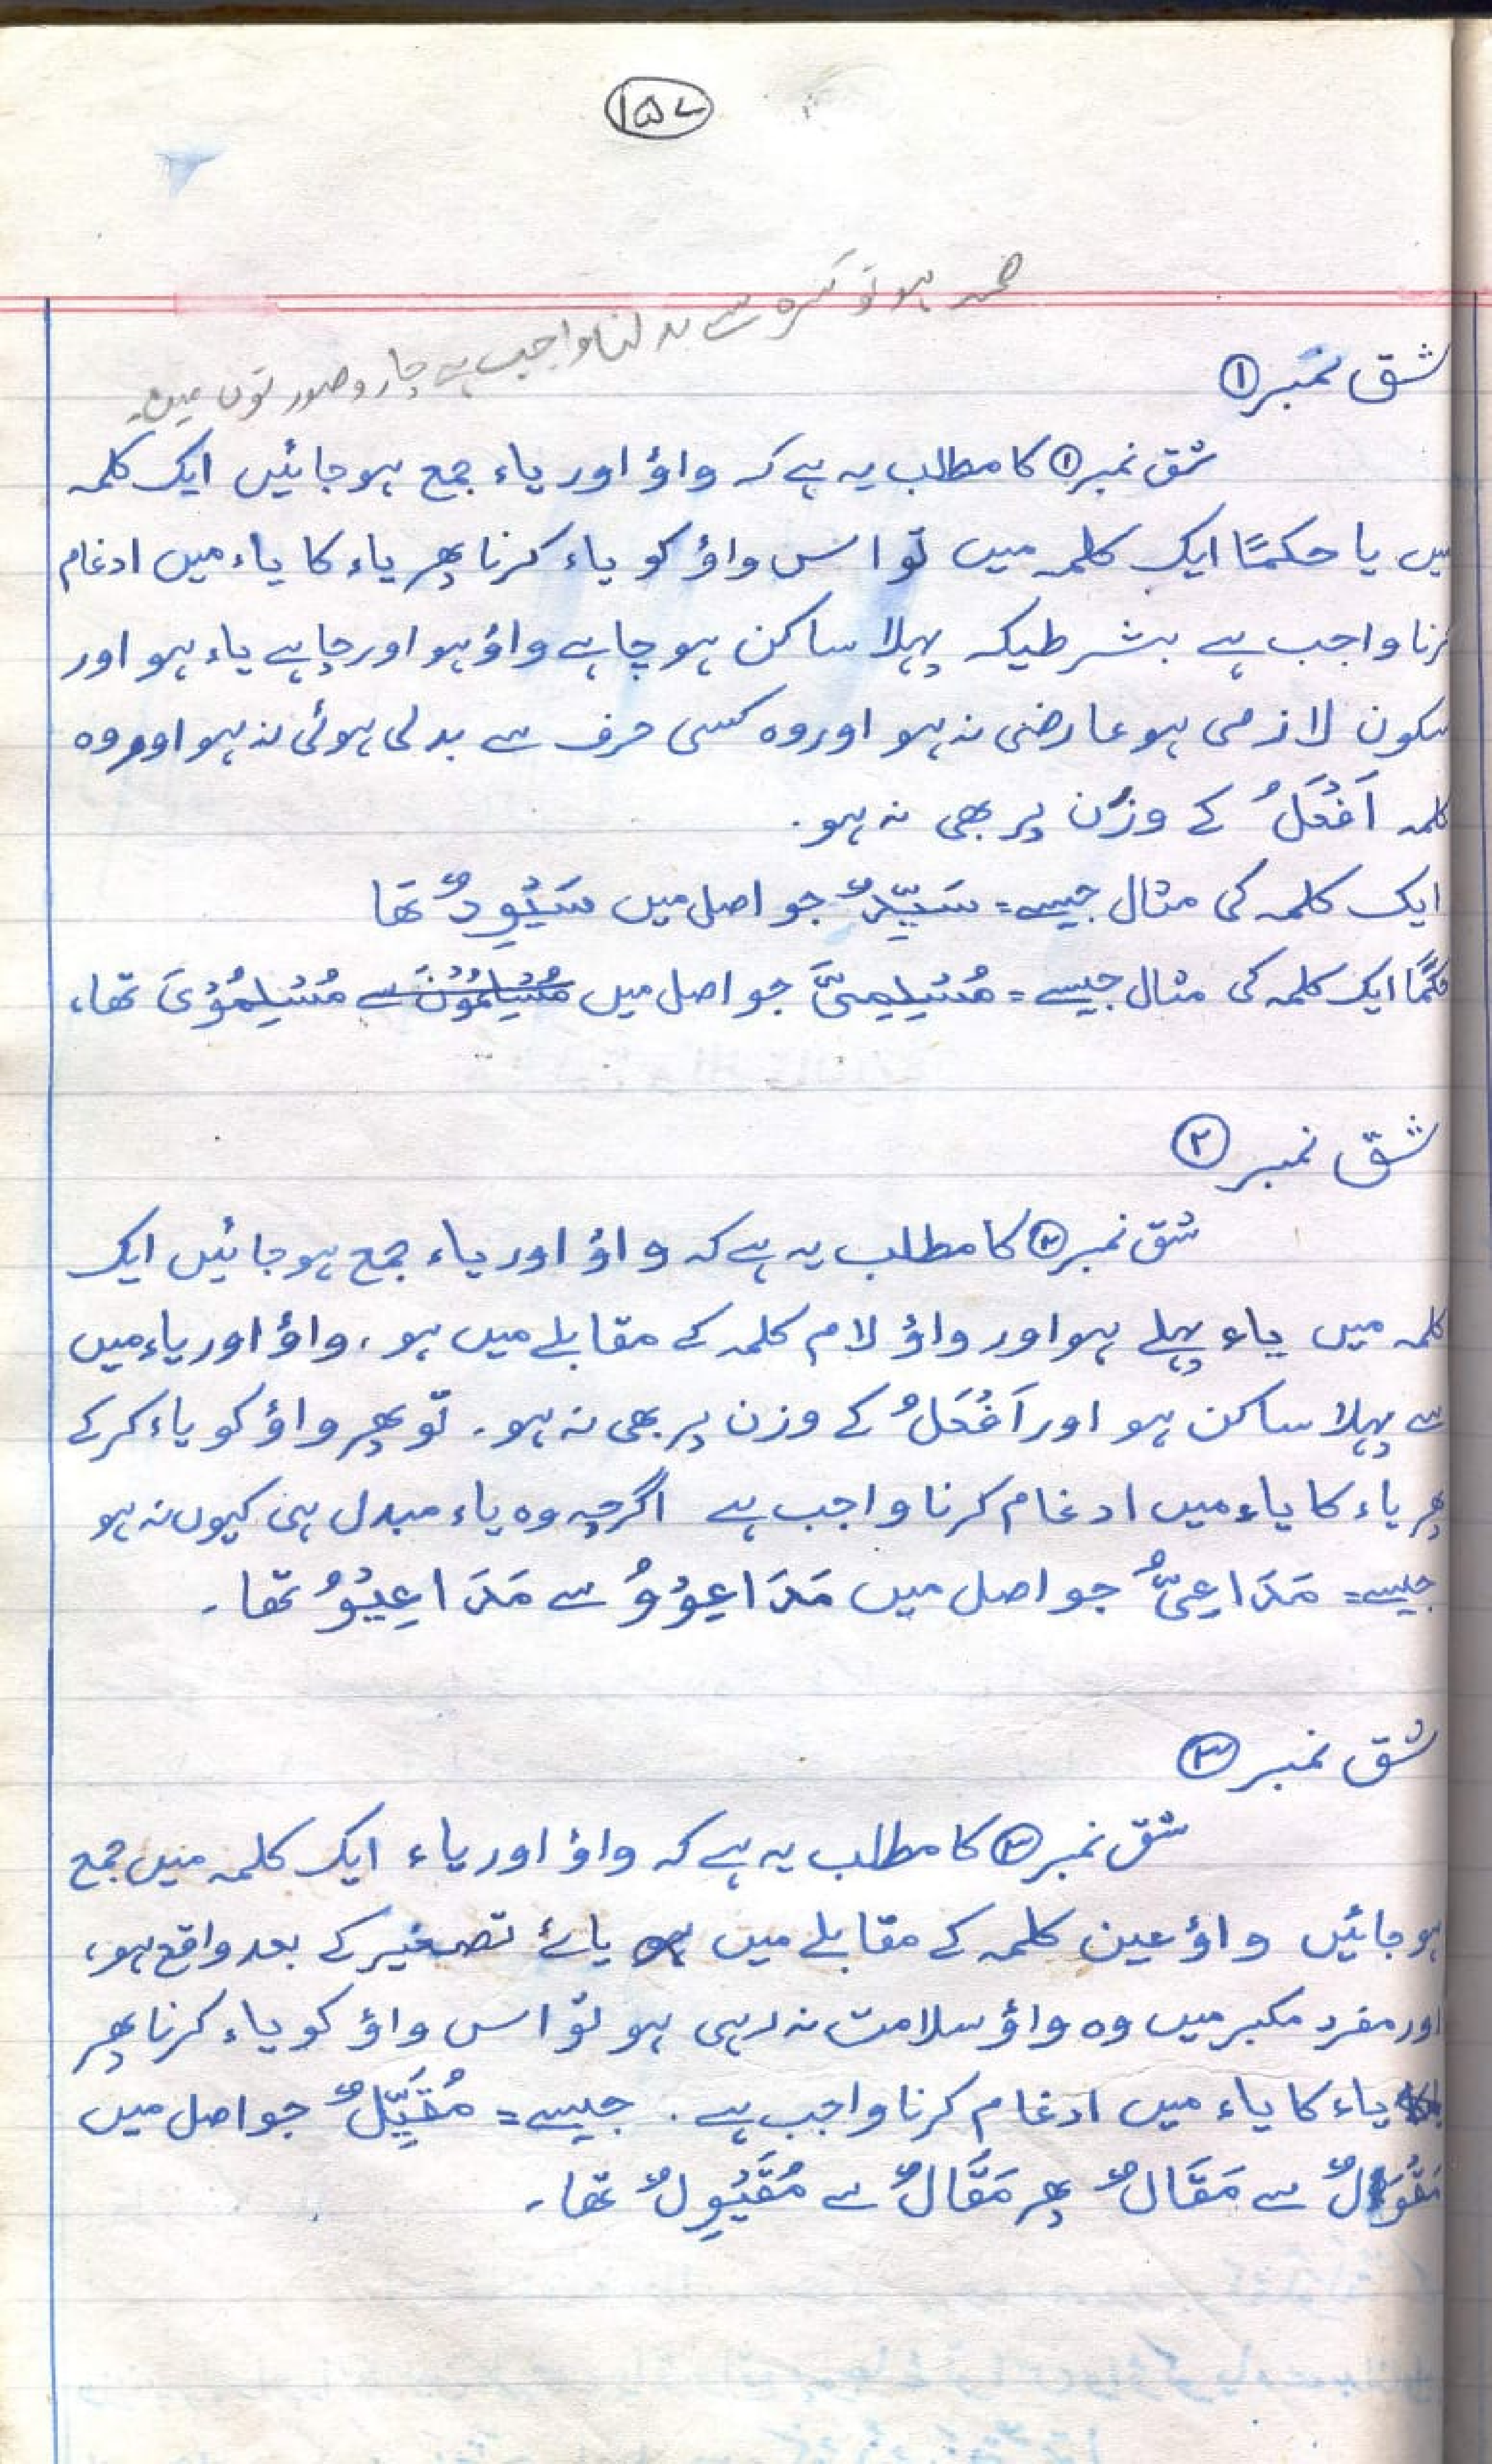 ۱۵۷
ضمہ ہو تو کسرہ سے بدلنا واجب ہے چاروں صورتوں میں۔
شق نمبر ①
شق نمبر ① کا مطلب یہ ہے کہ واؤ اور یاء جمع ہو جائیں ایک کلمہ
میں یا حکمًا ایک کلمہ میں تو اس واؤ کو یاء کرنا پھر یاء کا یاء میں ادغام
کرنا واجب ہے بشرطیکہ پہلا ساکن ہو چاہے واؤ ہو اور چاہے یاء ہو اور
سکون لازمی ہو عارضی نہ ہو اور وہ کسی حرف سے بدلی ہوئی نہ ہو اور وہ
کلمہ اَفْعَلُ کے وزن پر بھی نہ ہو۔
ایک کلمہ کی مثال جیسے = سَیِّدٌ جو اصل میں سَیْوِدٌ تھا
حکمًا ایک کلمہ کی مثال جیسے = مُسْلِمِیَّ جو اصل میں مُسْلِمُوْنَ سے مُسْلِمُوْیَ تھا،
شق نمبر ②
شق نمبر ② کا مطلب یہ ہے کہ واؤ اور یاء جمع ہو جائیں ایک
کلمہ میں یاء پہلے ہو اور واؤ لام کلمہ کے مقابلے میں ہو، واؤ اور یاء میں
سے پہلا ساکن ہو اور اَفْعَلُ کے وزن پر بھی نہ ہو۔ تو پھر واؤ کو یاء کر کے
پھر یاء کا یاء میں ادغام کرنا واجب ہے اگرچہ وہ یاء مبدل ہی کیوں نہ ہو
جیسے = مَدَاعِیُّ جو اصل میں مَدَاعِوْوُ سے مَدَاعِیْوُ تھا۔
شق نمبر ③
شق نمبر ③ کا مطلب یہ ہے کہ واؤ اور یاء ایک کلمہ میں جمع
ہو جائیں واؤ عین کلمہ کے مقابلے میں یائے تصغیر کے بعد واقع ہو،
اور مفرد مکبر میں وہ واؤ سلامت نہ رہی ہو تو اس واؤ کو یاء کرنا پھر
یاء کا یاء میں ادغام کرنا واجب ہے۔ جیسے = مُقَیِّلٌ جو اصل میں
مَقْوَلٌ سے مَقَالٌ پھر مَقَالٌ سے مُقَیْوِلٌ تھا۔